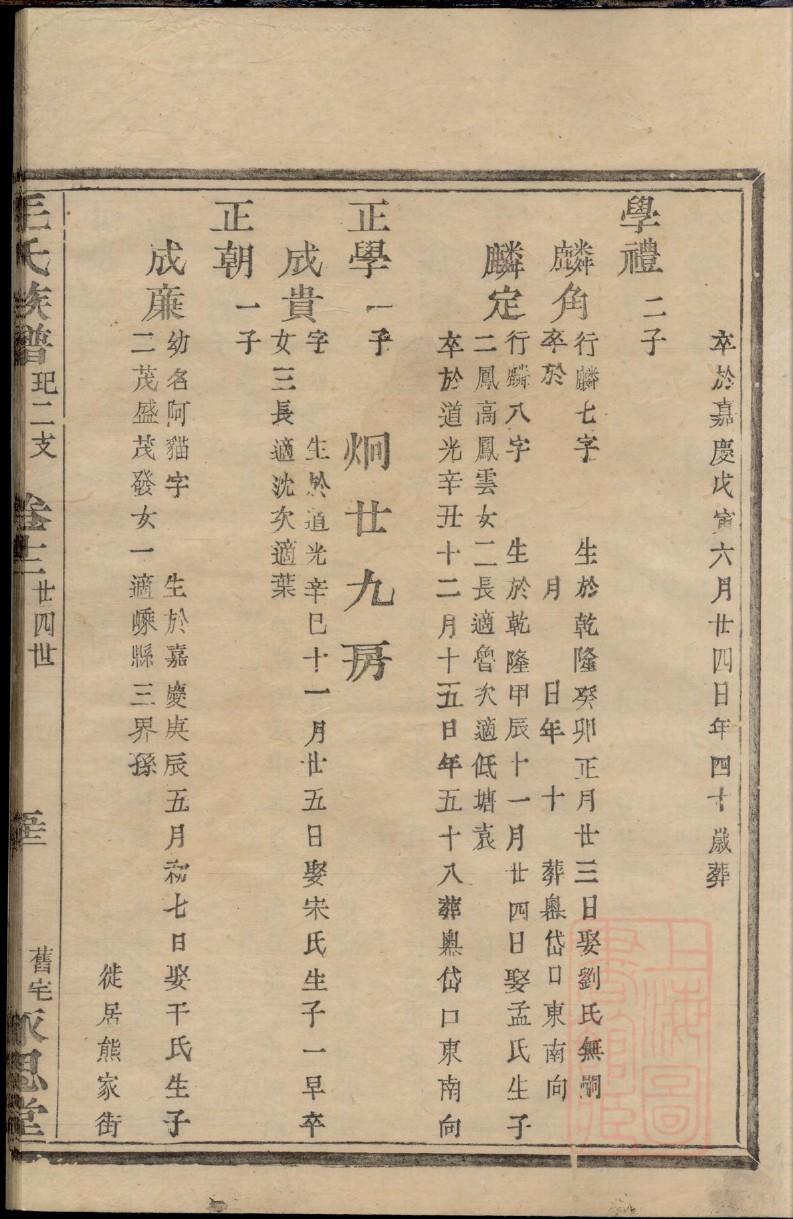 卒於嘉慶戊寅六月廿四日年四十歲葬
學禮 二子
麟角 行麟七字 生於乾隆癸卯正月廿三日娶劉氏無嗣
卒於 月 日年 十 葬嶴岱口東南向
麟定 行麟八字 生於乾隆甲辰十一月廿四日娶孟氏生子
二鳳高鳳雲女二長適魯次適低塘袁
卒於道光辛丑十二月十五日年五十八葬嶴岱口東南向
炯廿九房
正學 一子
成貴 字 生於道光辛巳十一月廿五日娶宋氏生子一早卒
女三長適沈次適葉
正朝 一子
成廉 幼名阿貓字 生於嘉慶庚辰五月初七日娶干氏生子
二茂盛茂發女一適嵊縣三界孫
徙居熊家街
毛氏族譜 玘二支 卷十二 廿四世 舊宅永思堂
上海圖書館藏